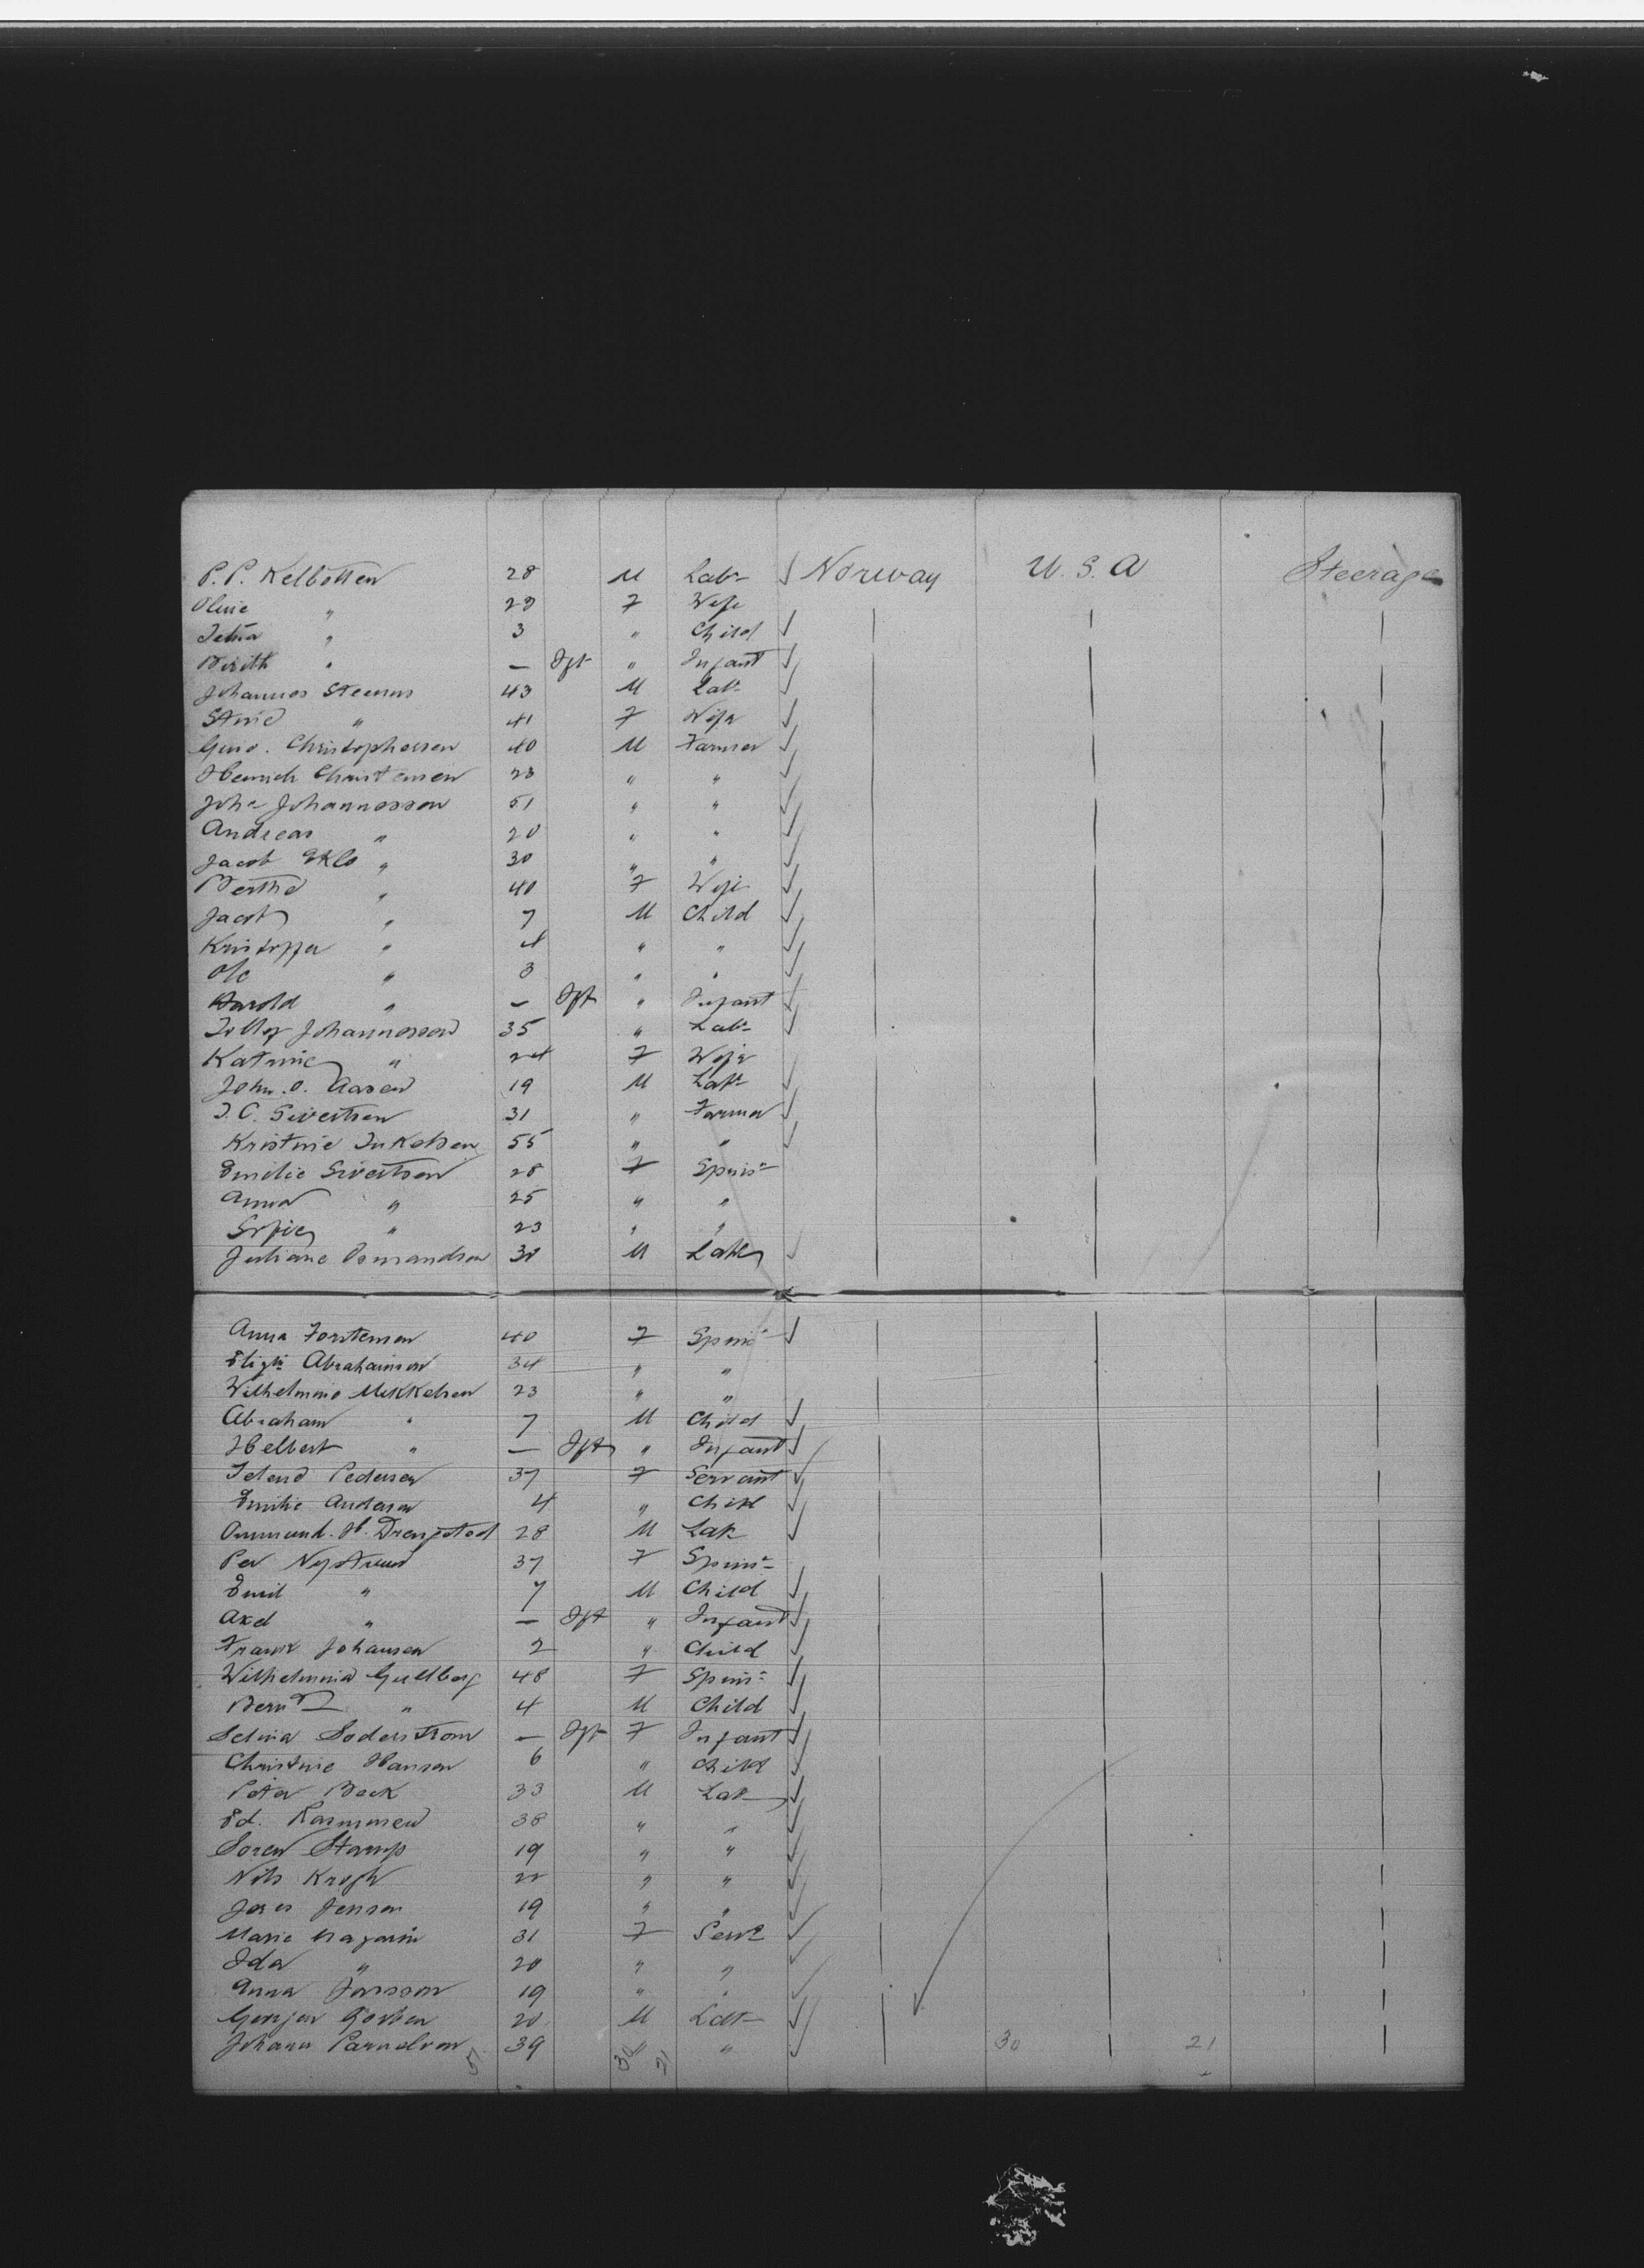 P. P. Kelbotten 28 M Labr Norway U. S. A Steerage
Oline " 29 F Wife
3 " Child
Berith " — Ift " Infant
Johannes 43 M Labr
" 41 F Wife
Christophersen 40 M Farmer
Henrich Christensen 23 " "
Joh. Johannessen 51 " "
Andreas " 20 " "
Jacob Eklo " 30 " "
Berthe " 40 F Wife
Jacob " 7 M Child
Kristoffer " 4 " "
Ole " 3 " "
Harold " — Ift " Infant
Johannessen 35 " Labr
Katrine " 24 F Wife
John. O. Aasen 19 M Labr
Sivertsen 31 " Farmer
Kristine 55 " "
Emilie Sivertsen 28 F Spinsr
Anna " 25 " "
Sofie " 23 " "
Juliane Osmandsen 30 M Labr
Anna Torstensen 40 F Spinsr
Abrahamsen 34 " "
Wilhelmine Mikkelsen 23 " "
Abraham " 7 M Child
Helbert " — Ift " Infant
Pedersen 37 F Servant
Emilie Andersen 4 " Child
28 M Labr
Per Nystrund 37 F Spinsr
Emil " 7 M Child
Axel " — Ift " Infant
Frank Johansen 2 " Child
Wilhelmina Gullberg 48 F Spinsr
Bernt " 4 M Child
Selma Soderstrom — Ift F Infant
Christine Hansen 6 " Child
Peter Beck 33 M Labr
Ed. Rasmusen 38 " "
Soren Stamp 19 " "
Nils Krogh 22 " "
Jensen 19 " "
Marie 31 F Servt
Ida " 20 " "
Anna 19 " "
20 M Labr
Johann 39 " "
51 30 21 30 21